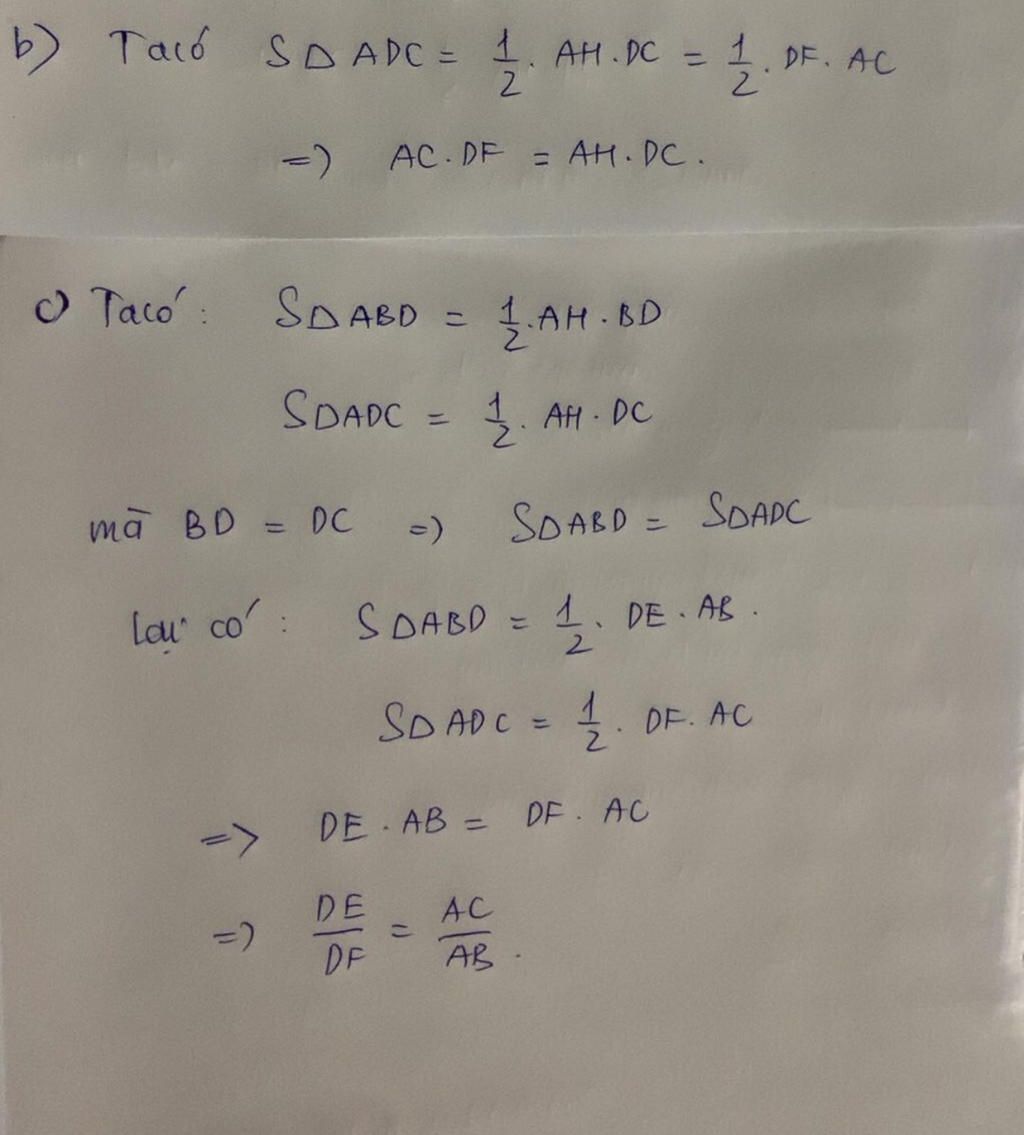 b) Ta có SΔADC = 1/2 . AH . DC = 1/2 . DF . AC
=> AC . DF = AH . DC .
c) Ta có : SΔABD = 1/2 . AH . BD
SΔADC = 1/2 . AH . DC
mà BD = DC => SΔABD = SΔADC
Lại có : SΔABD = 1/2 . DE . AB .
SΔADC = 1/2 . DF . AC
=> DE . AB = DF . AC
=> DE/DF = AC/AB .